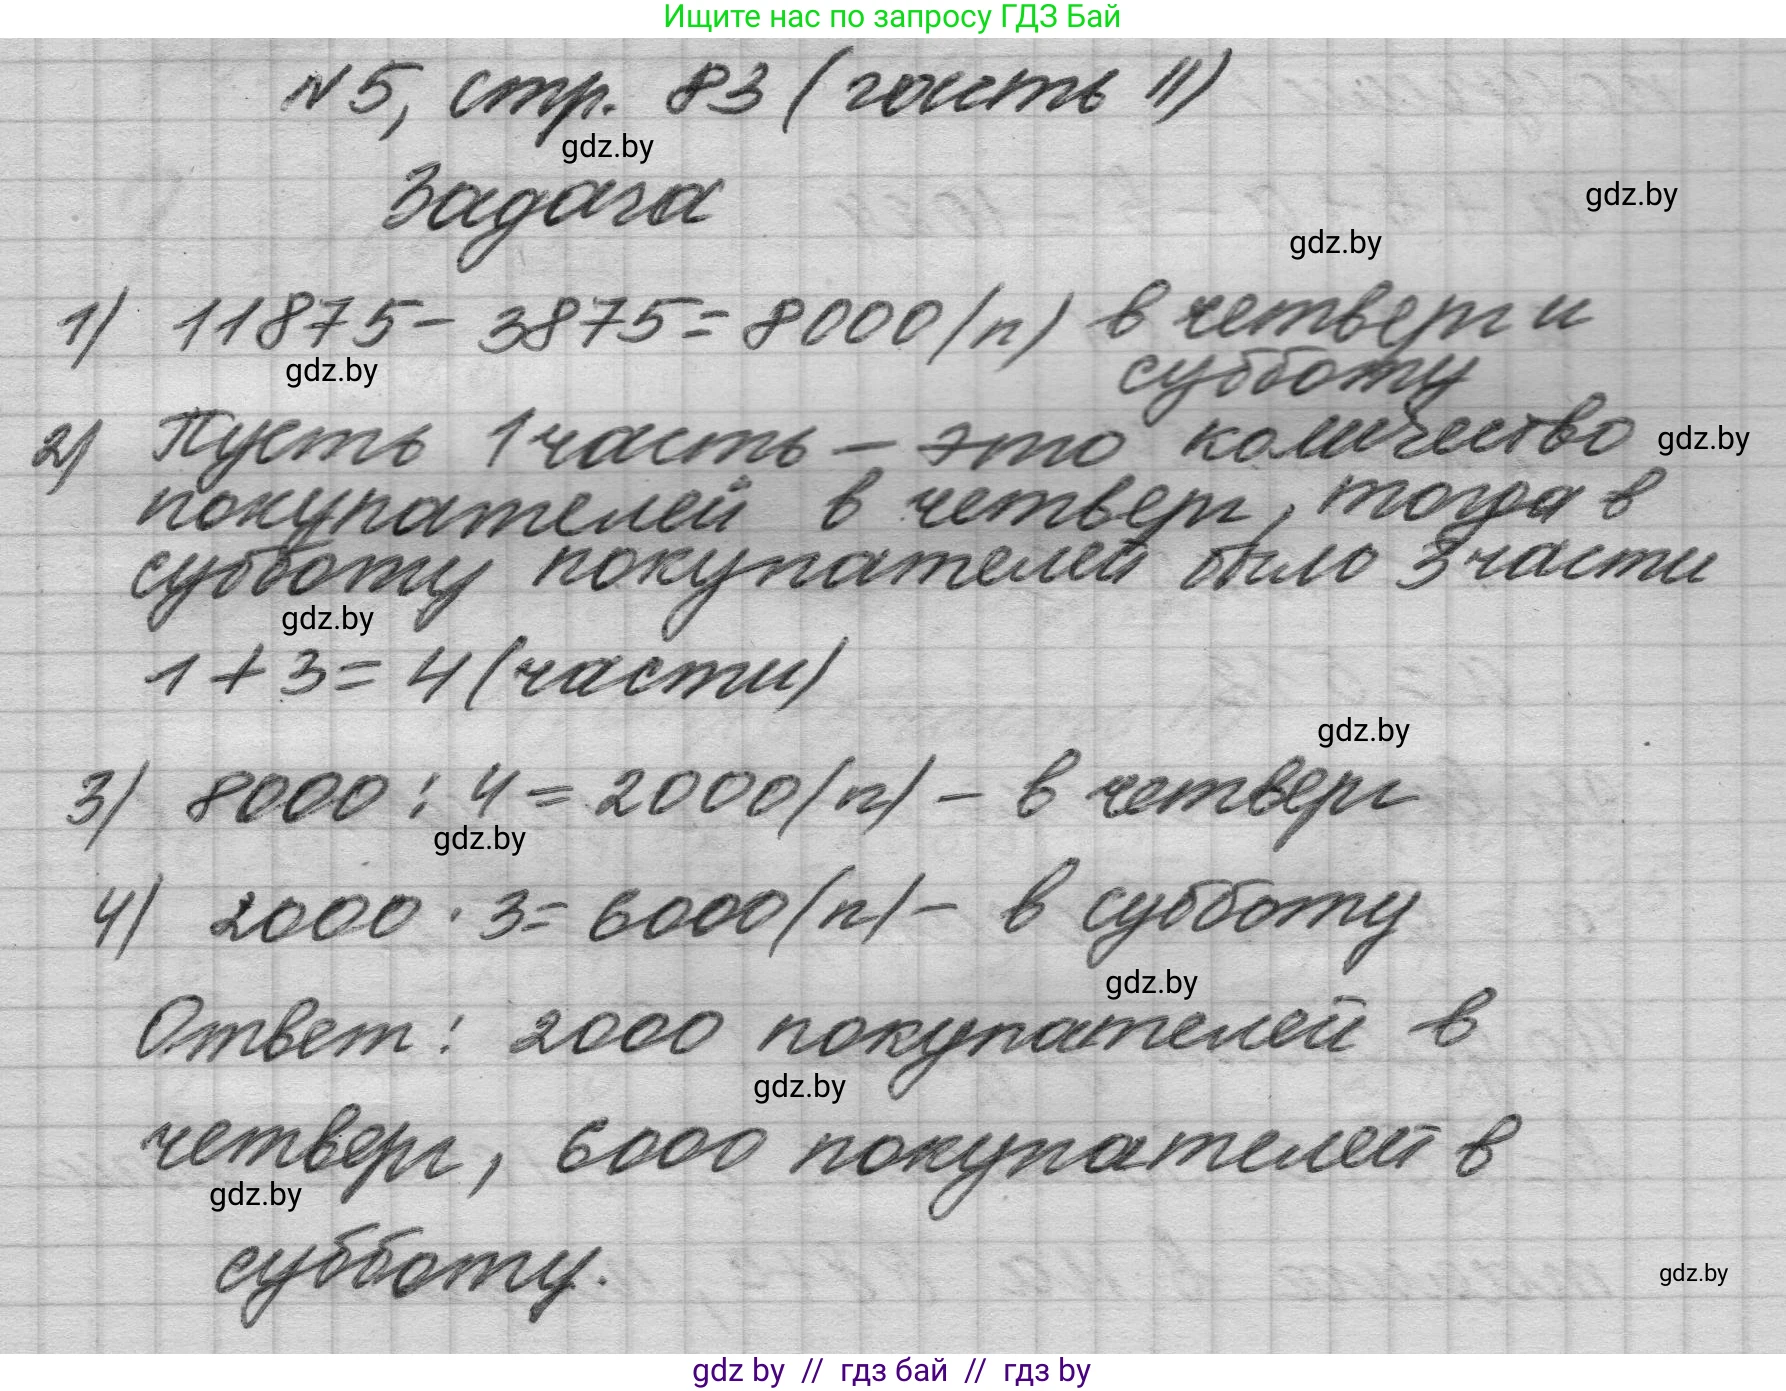 Ищите нас по запросу ГДЗ Бай
№5, стр. 83 (часть II)
gdz.by
Задача
gdz.by
gdz.by
1) 11875 - 3875 = 8000 (п) в четверг и
субботу
gdz.by
2) Пусть 1 часть - это количество
gdz.by
покупателей в четверг, тогда в
субботу покупателей было 3 части
gdz.by
1 + 3 = 4 (части)
gdz.by
3) 8000 : 4 = 2000 (п) - в четверг
gdz.by
4) 2000 · 3 = 6000 (п) - в субботу
gdz.by
Ответ: 2000 покупателей в
gdz.by
четверг, 6000 покупателей в
gdz.by
субботу.
gdz.by
gdz by // гдз бай // гдз by